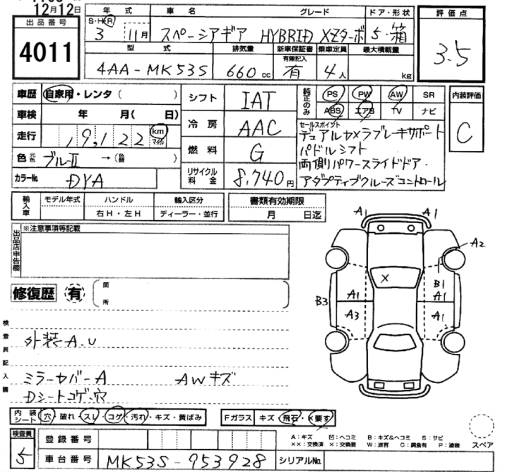 12月12日
出品番号
4011
年式 車名 グレード ドア・形状
S・H・R 3 11月 スペーシアギア HYBRID XZターボ 5・箱
型式 排気量 新車保証書 乗車定員 最大積載量
4AA-MK53S 660cc 有無記入 有 4人 kg
評価点
3.5
車歴 自家用・レンタ( )
車検 年 月( )
走行 19,122 km マイル
色 ブルーII →( )
カラーNo. DYA
シフト IAT
冷房 AAC
燃料 G
リサイクル料金 8,740円
純正のみ
PS PW AW SR
ABS エアB TV ナビ
セールスポイント
デュアルカメラブレーキサポート
パドルシフト
両側パワースライドドア・
アダプティブクルーズコントロール
内装評価
C
輸入車 モデル年式 ハンドル 輸入区分 書類有効期限
右H・左H ディーラー・並行 月 日迄
出品店申告欄
※注意事項等記載
修復歴 有
箇所
検査員記入欄
外装A.U
ミラーカバーA AWキズ
Dシートコゲ穴
A1
A2
X
B1
A1 A1
B3
A3 A1
A1
内装シート 穴・破れ・スレ・コゲ・汚れ・キズ・黄ばみ
Fガラス キズ・飛石・
スペア
検査員 5
登録番号
A:キズ
車台番号 MK53S-953928
シリアルNo.